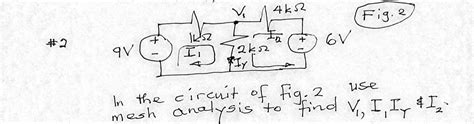 V₁ 4kΩ Fig. 2
#2 9V + - 1kΩ I₁ 2kΩ I₂ + - 6V
I_Y
In the circuit of fig. 2 use
mesh analysis to find V₁, I₁ I_Y & I₂.